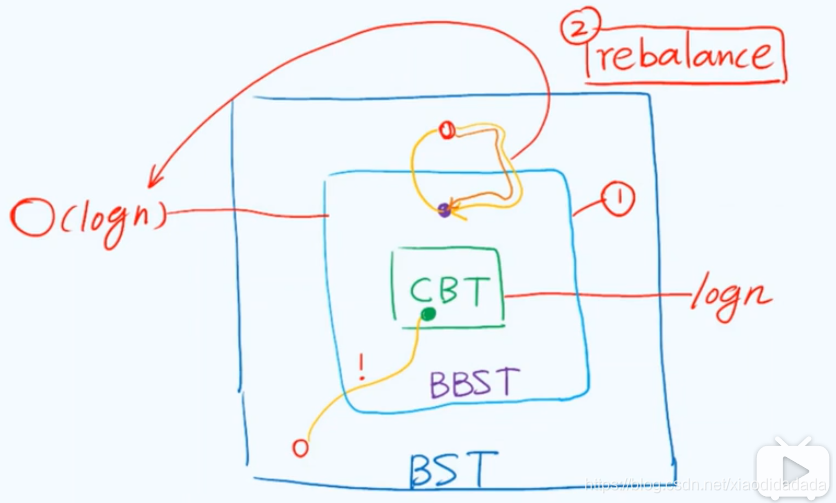 ②
rebalance
O(logn)
①
CBT
logn
!
BBST
BST
https://blog.csdn.net/xiaodidadada